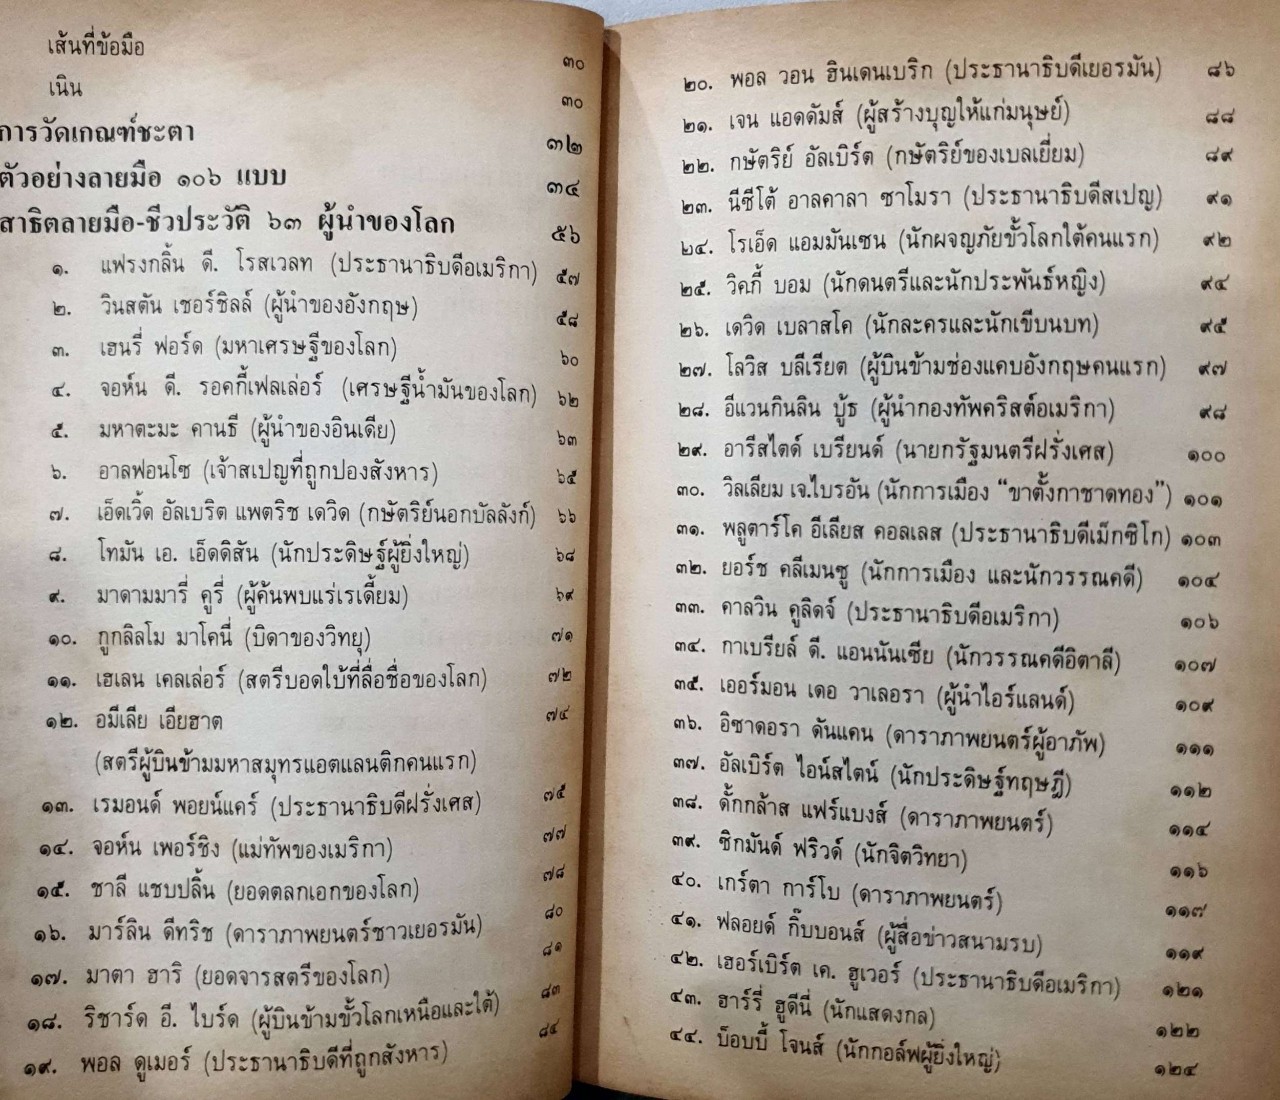 เส้นที่ข้อมือ ๓๐
เนิน ๓๐
การวัดเกณฑ์ชะตา ๓๒
ตัวอย่างลายมือ ๑๐๖ แบบ ๓๔
สาธิตลายมือ-ชีวประวัติ ๖๓ ผู้นำของโลก ๕๖
๑. แฟรงกลิ้น ดี. โรสเวลท (ประธานาธิบดีอเมริกา) ๕๗
๒. วินสตัน เชอร์ชิลล์ (ผู้นำของอังกฤษ) ๕๘
๓. เฮนรี่ ฟอร์ด (มหาเศรษฐีของโลก) ๖๐
๔. จอห์น ดี. รอคกี้เฟลเล่อร์ (เศรษฐีน้ำมันของโลก) ๖๒
๕. มหาตะมะ คานธี (ผู้นำของอินเดีย) ๖๓
๖. อาลฟอนโซ (เจ้าสเปญที่ถูกปองสังหาร) ๖๕
๗. เอ็ดเวิ้ด อัลเบริต แพตริช เดวิด (กษัตริย์นอกบัลลังก์) ๖๖
๘. โทมัน เอ. เอ็ดดิสัน (นักประดิษฐ์ผู้ยิ่งใหญ่) ๖๘
๙. มาดามมารี่ คูรี่ (ผู้ค้นพบแร่เรเดี้ยม) ๖๙
๑๐. กูกลิลโม มาโคนี่ (บิดาของวิทยุ) ๗๑
๑๑. เฮเลน เคลเล่อร์ (สตรีบอดใบ้ที่ลือชื่อของโลก) ๗๒
๑๒. อมีเลีย เอียฮาต ๗๔
(สตรีผู้บินข้ามมหาสมุทรแอตแลนติกคนแรก)
๑๓. เรมอนด์ พอยน์แคร์ (ประธานาธิบดีฝรั่งเศส) ๗๕
๑๔. จอห์น เพอร์ชิง (แม่ทัพของเมริกา) ๗๗
๑๕. ชาลี แชบปลิ้น (ยอดตลกเอกของโลก) ๗๘
๑๖. มาร์ลิน ดีทริช (ดาราภาพยนตร์ชาวเยอรมัน) ๘๐
๑๗. มาตา ฮาริ (ยอดจารสตรีของโลก) ๘๑
๑๘. ริชาร์ด อี. ไบร์ด (ผู้บินข้ามขั้วโลกเหนือและใต้) ๘๓
๑๙. พอล ดูเมอร์ (ประธานาธิบดีที่ถูกสังหาร) ๘๔
๒๐. พอล วอน ฮินเดนเบริก (ประธานาธิบดีเยอรมัน) ๘๖
๒๑. เจน แอดดัมส์ (ผู้สร้างบุญให้แก่มนุษย์) ๘๘
๒๒. กษัตริย์ อัลเบิร์ต (กษัตริย์ของเบลเยี่ยม) ๘๙
๒๓. นีซีโต้ อาลคาลา ซาโมรา (ประธานาธิบดีสเปญ) ๙๑
๒๔. โรเอ็ด แอมมันเซน (นักผจญภัยขั้วโลกใต้คนแรก) ๙๒
๒๕. วิคกี้ บอม (นักดนตรีและนักประพันธ์หญิง) ๙๔
๒๖. เดวิด เบลาสโค (นักละครและนักเขียนบท) ๙๕
๒๗. โลวิส บลีเรียต (ผู้บินข้ามช่องแคบอังกฤษคนแรก) ๙๗
๒๘. อีแวนกินลิน บู้ธ (ผู้นำกองทัพคริสต์อเมริกา) ๙๘
๒๙. อารีสไตด์ เบรียนด์ (นายกรัฐมนตรีฝรั่งเศส) ๑๐๐
๓๐. วิลเลียม เจ.ไบรอัน (นักการเมือง “ขาตั้งกาชาดทอง”) ๑๐๑
๓๑. พลูตาร์โค อีเลียส คอลเลส (ประธานาธิบดีเม็กซิโก) ๑๐๓
๓๒. ยอร์ช คลีเมนซู (นักการเมือง และนักวรรณคดี) ๑๐๔
๓๓. คาลวิน คูลิดจ์ (ประธานาธิบดีอเมริกา) ๑๐๖
๓๔. กาเบรียล์ ดี. แอนนันเซีย (นักวรรณคดีอิตาลี) ๑๐๗
๓๕. เออร์มอน เดอ วาเลอรา (ผู้นำไอร์แลนด์) ๑๐๙
๓๖. อิซาดอรา ดันแคน (ดาราภาพยนตร์ผู้อาภัพ) ๑๑๑
๓๗. อัลเบิร์ต ไอน์สไตน์ (นักประดิษฐ์ทฤษฎี) ๑๑๒
๓๘. ดั้กกล้าส แฟร์แบงส์ (ดาราภาพยนตร์) ๑๑๔
๓๙. ซิกมันด์ ฟริวด์ (นักจิตวิทยา) ๑๑๖
๔๐. เกร์ตา การ์โบ (ดาราภาพยนตร์) ๑๑๗
๔๑. ฟลอยด์ กิ๊บบอนส์ (ผู้สื่อข่าวสนามรบ) ๑๑๙
๔๒. เฮอร์เบิร์ต เค. ฮูเวอร์ (ประธานาธิบดีอเมริกา) ๑๒๑
๔๓. ฮาร์รี่ ฮูดีนี่ (นักแสดงกล) ๑๒๒
๔๔. บ็อบบี้ โจนส์ (นักกอล์ฟผู้ยิ่งใหญ่) ๑๒๔